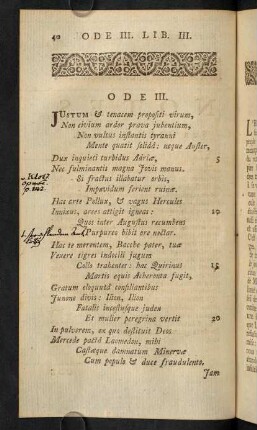 40 ODE III. LIB. III.
ODE III.
JUSTUM & tenacem propositi virum,
Non civium ardor prava jubentium,
Non vultus instantis tyranni
Mente quatit solidâ: neque Auster,
Dux inquieti turbidus Adriæ, 5
Nec fulminantis magna Jovis manus.
Si fractus illabatur orbis,
Impavidum ferient ruinæ.
Hac arte Pollux, & vagus Hercules
Innixus, arces attigit igneas: 10
Quos inter Augustus recumbens
Purpureo bibit ore nectar.
Hac te merentem, Bacche pater, tuæ
Vexere tigres indocili jugum
Collo trahentes: hac Quirinus 15
Martis equis Acheronta fugit,
Gratum eloquutâ consiliantibus
Junone divis: Ilion, Ilion
Fatalis incestusque judex
Et mulier peregrina vertit 20
In pulverem, ex quo destituit Deos
Mercede pactâ Laomedon, mihi
Castæque damnatum Minervæ
Cum populo & duce fraudulento.
Jam